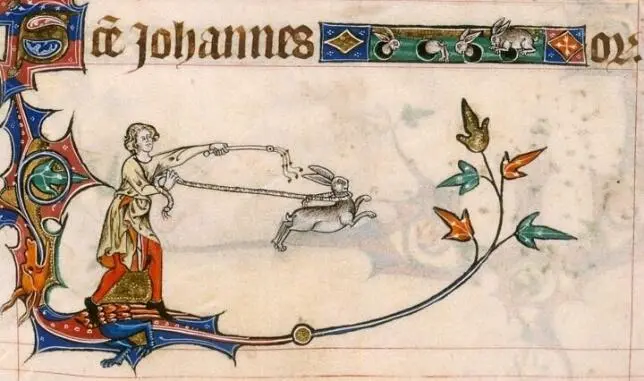 Scē Johannes or.